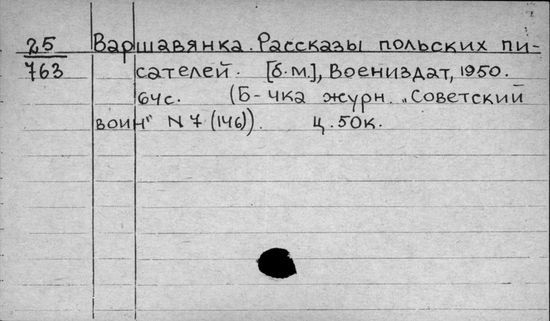 25 Варшавянка. Рассказы польских пи-
763 сателей. [б.м.], Воениздат, 1950.
64с. (Б-чка журн. „Советский
воин" N 7 (146)). Ц. 50к.